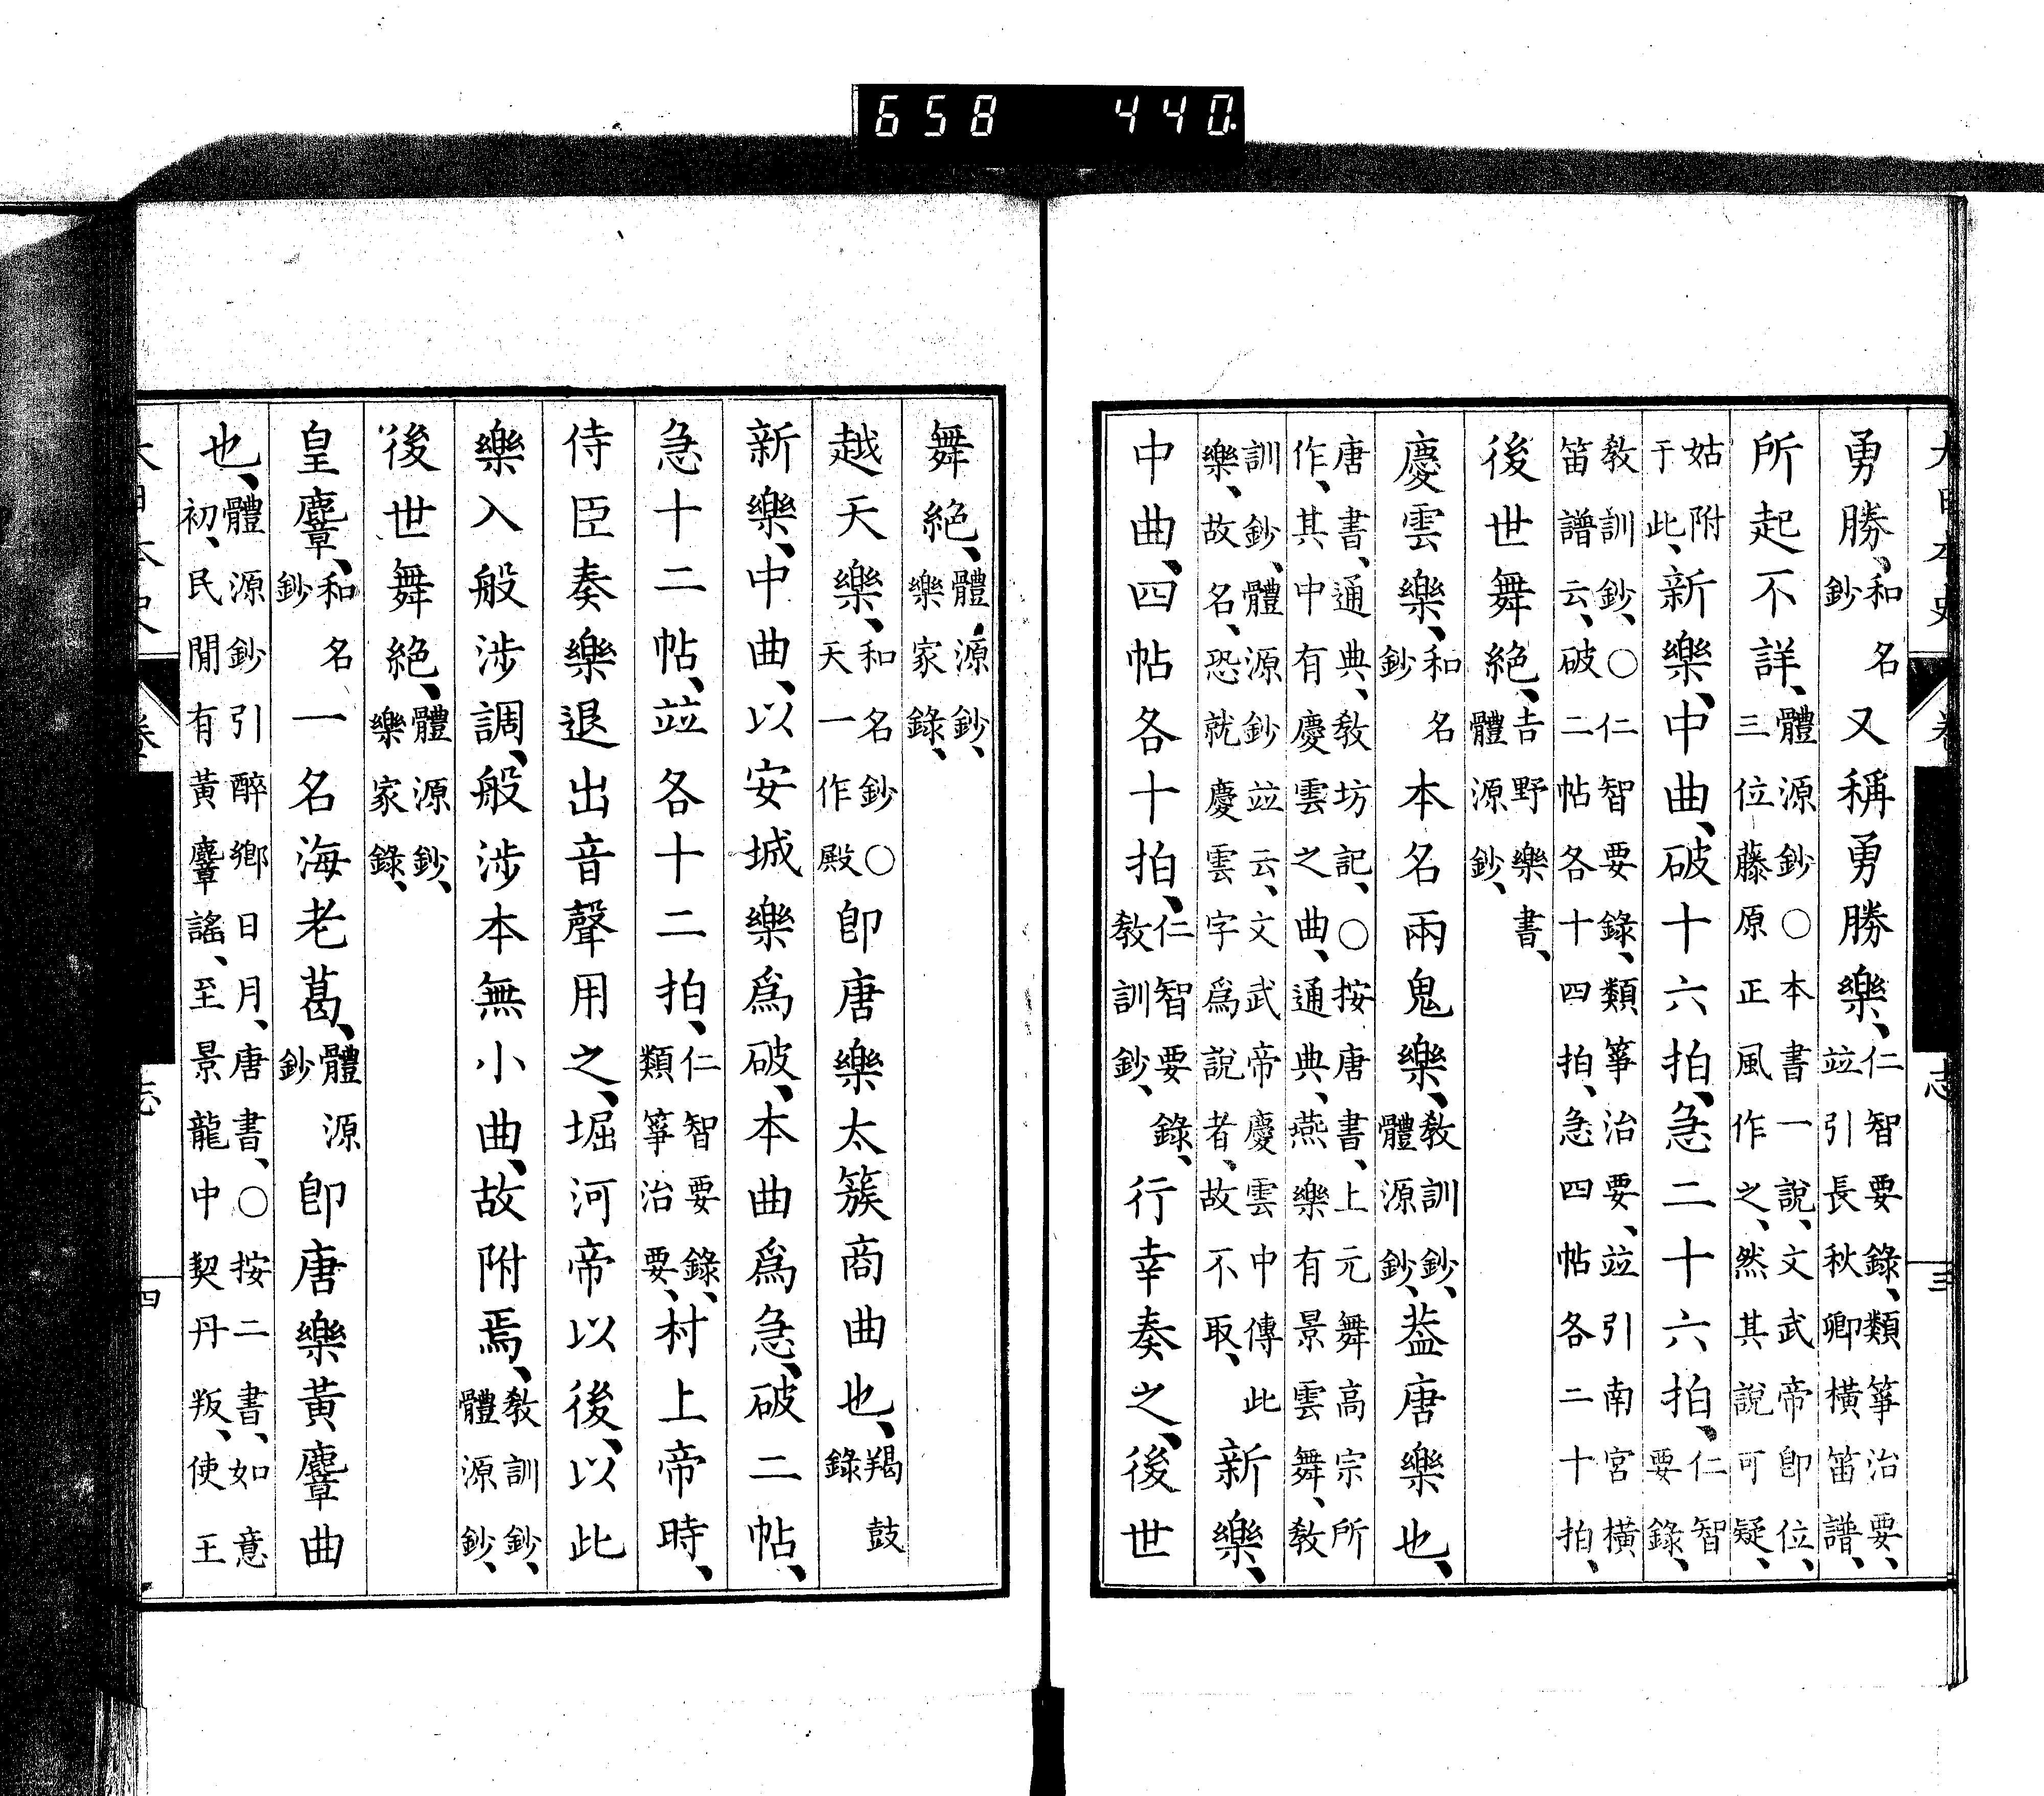 658 440
勇勝、和名鈔又稱勇勝樂、仁智要錄、類箏治要、竝引長秋卿橫笛譜、
所起不詳、體源鈔○本書一說、文武帝卽位、三位藤原正風作之、然其說可疑、
姑附于此、新樂、中曲、破十六拍、急二十六拍、仁智要錄、
教訓鈔、○仁智要錄、類箏治要、竝引南宮橫笛譜云、破二帖各十四拍、急四帖各二十拍、
後世舞絕、吉野樂書、體源鈔、
慶雲樂、和名鈔本名兩鬼樂、教訓鈔、體源鈔、蓋唐樂也、
唐書、通典、教坊記、○按唐書、上元舞高宗所作、其中有慶雲之曲、通典、燕樂有景雲舞、教
訓鈔、體源鈔竝云、文武帝慶雲中傳此樂、故名、恐就慶雲字爲說者、故不取、新樂、
中曲、四帖各十拍、仁智要錄、教訓鈔、行幸奏之、後世
舞絕、體源鈔、樂家錄、
越天樂、和名鈔○天一作殿卽唐樂太簇商曲也、羯鼓錄
新樂、中曲、以安城樂爲破、本曲爲急、破二帖、
急十二帖、竝各十二拍、仁智要錄、類箏治要、村上帝時、
侍臣奏樂退出音聲用之、堀河帝以後、以此
樂入般涉調、般涉本無小曲、故附焉、教訓鈔、體源鈔、
後世舞絕、體源鈔、樂家錄、
皇麞、和名鈔一名海老葛、體源鈔卽唐樂黃麞曲
也、體源鈔引醉鄉日月、唐書、○按二書、如意初、民閒有黃麞謠、至景龍中契丹叛、使王